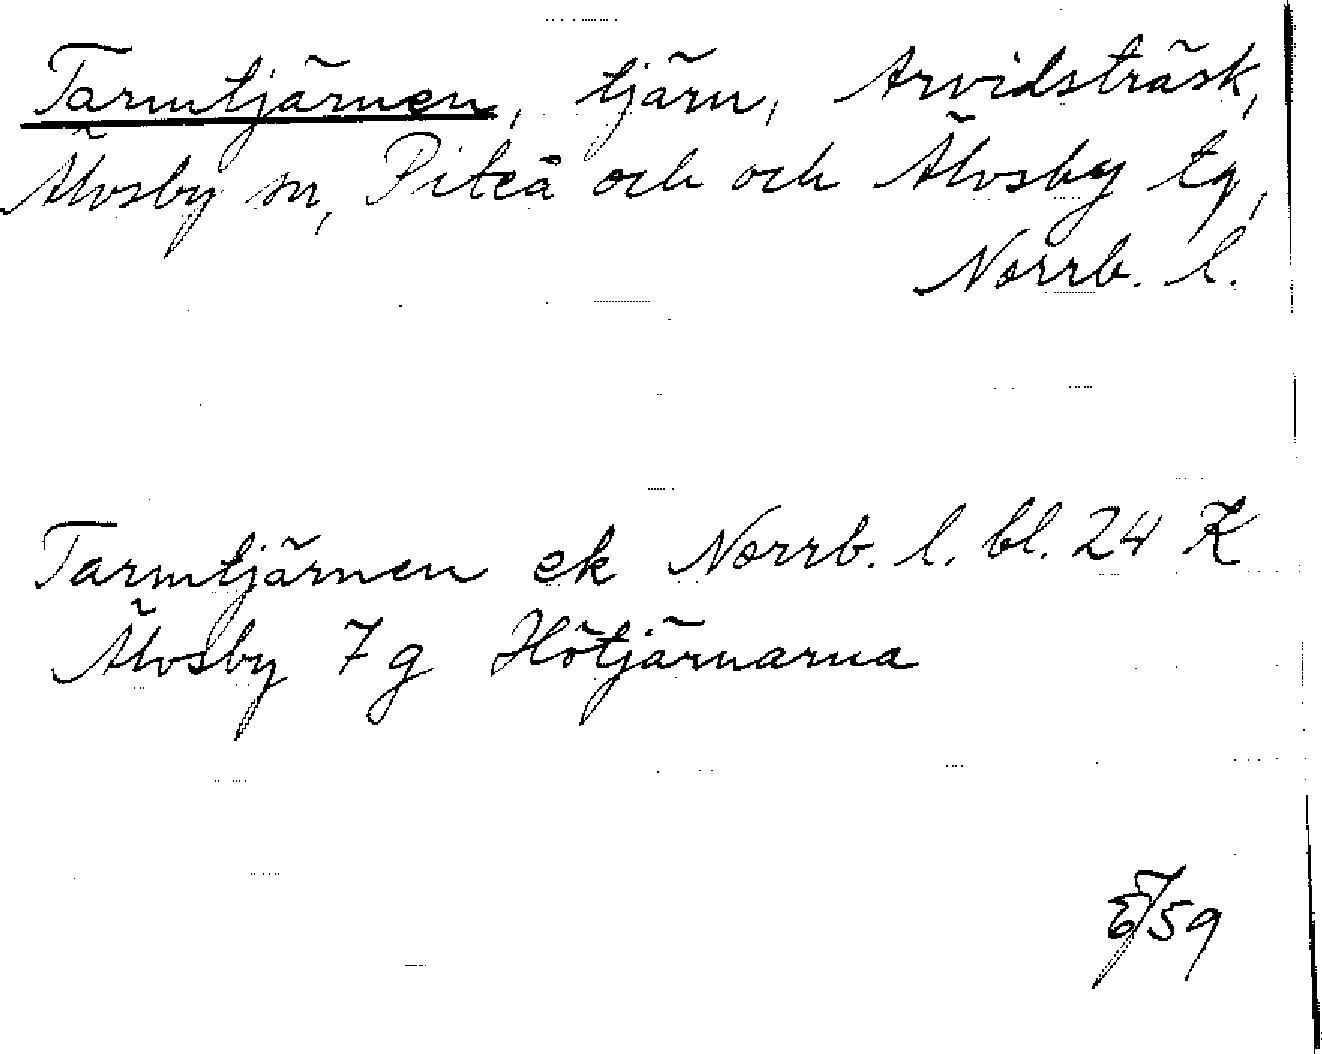 Tarmtjärnen, tjärn, Arvidsträsk,
Älvsby sn, Piteå och och Älvsby tg,
Norrb. l.
Tarmtjärnen ek Norrb. l. bl. 24 K
Älvsby 7 g Hötjärnarna